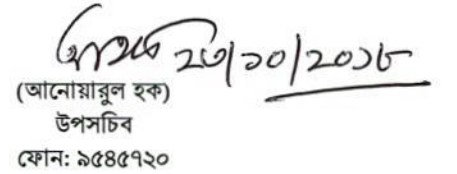 ২৩/১০/২০১৮
(আনোয়ারুল হক)
উপসচিব
ফোন: ৯৫৪৫৭২০